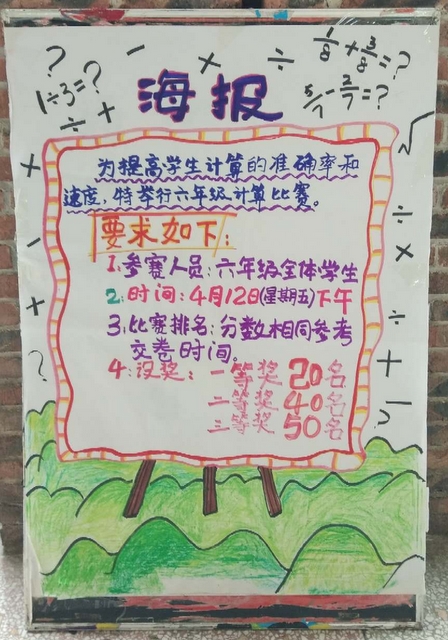 1/8+3/8=?
1÷3=?
5/7-2/7=?
海报
为提高学生计算的准确率和
速度，特举行六年级计算比赛。
要求如下：
1：参赛人员：六年级全体学生
2：时间：4月12日(星期五)下午
3：比赛排名：分数相同参考
交卷时间。
4：设奖：一等奖20名
二等奖40名
三等奖50名